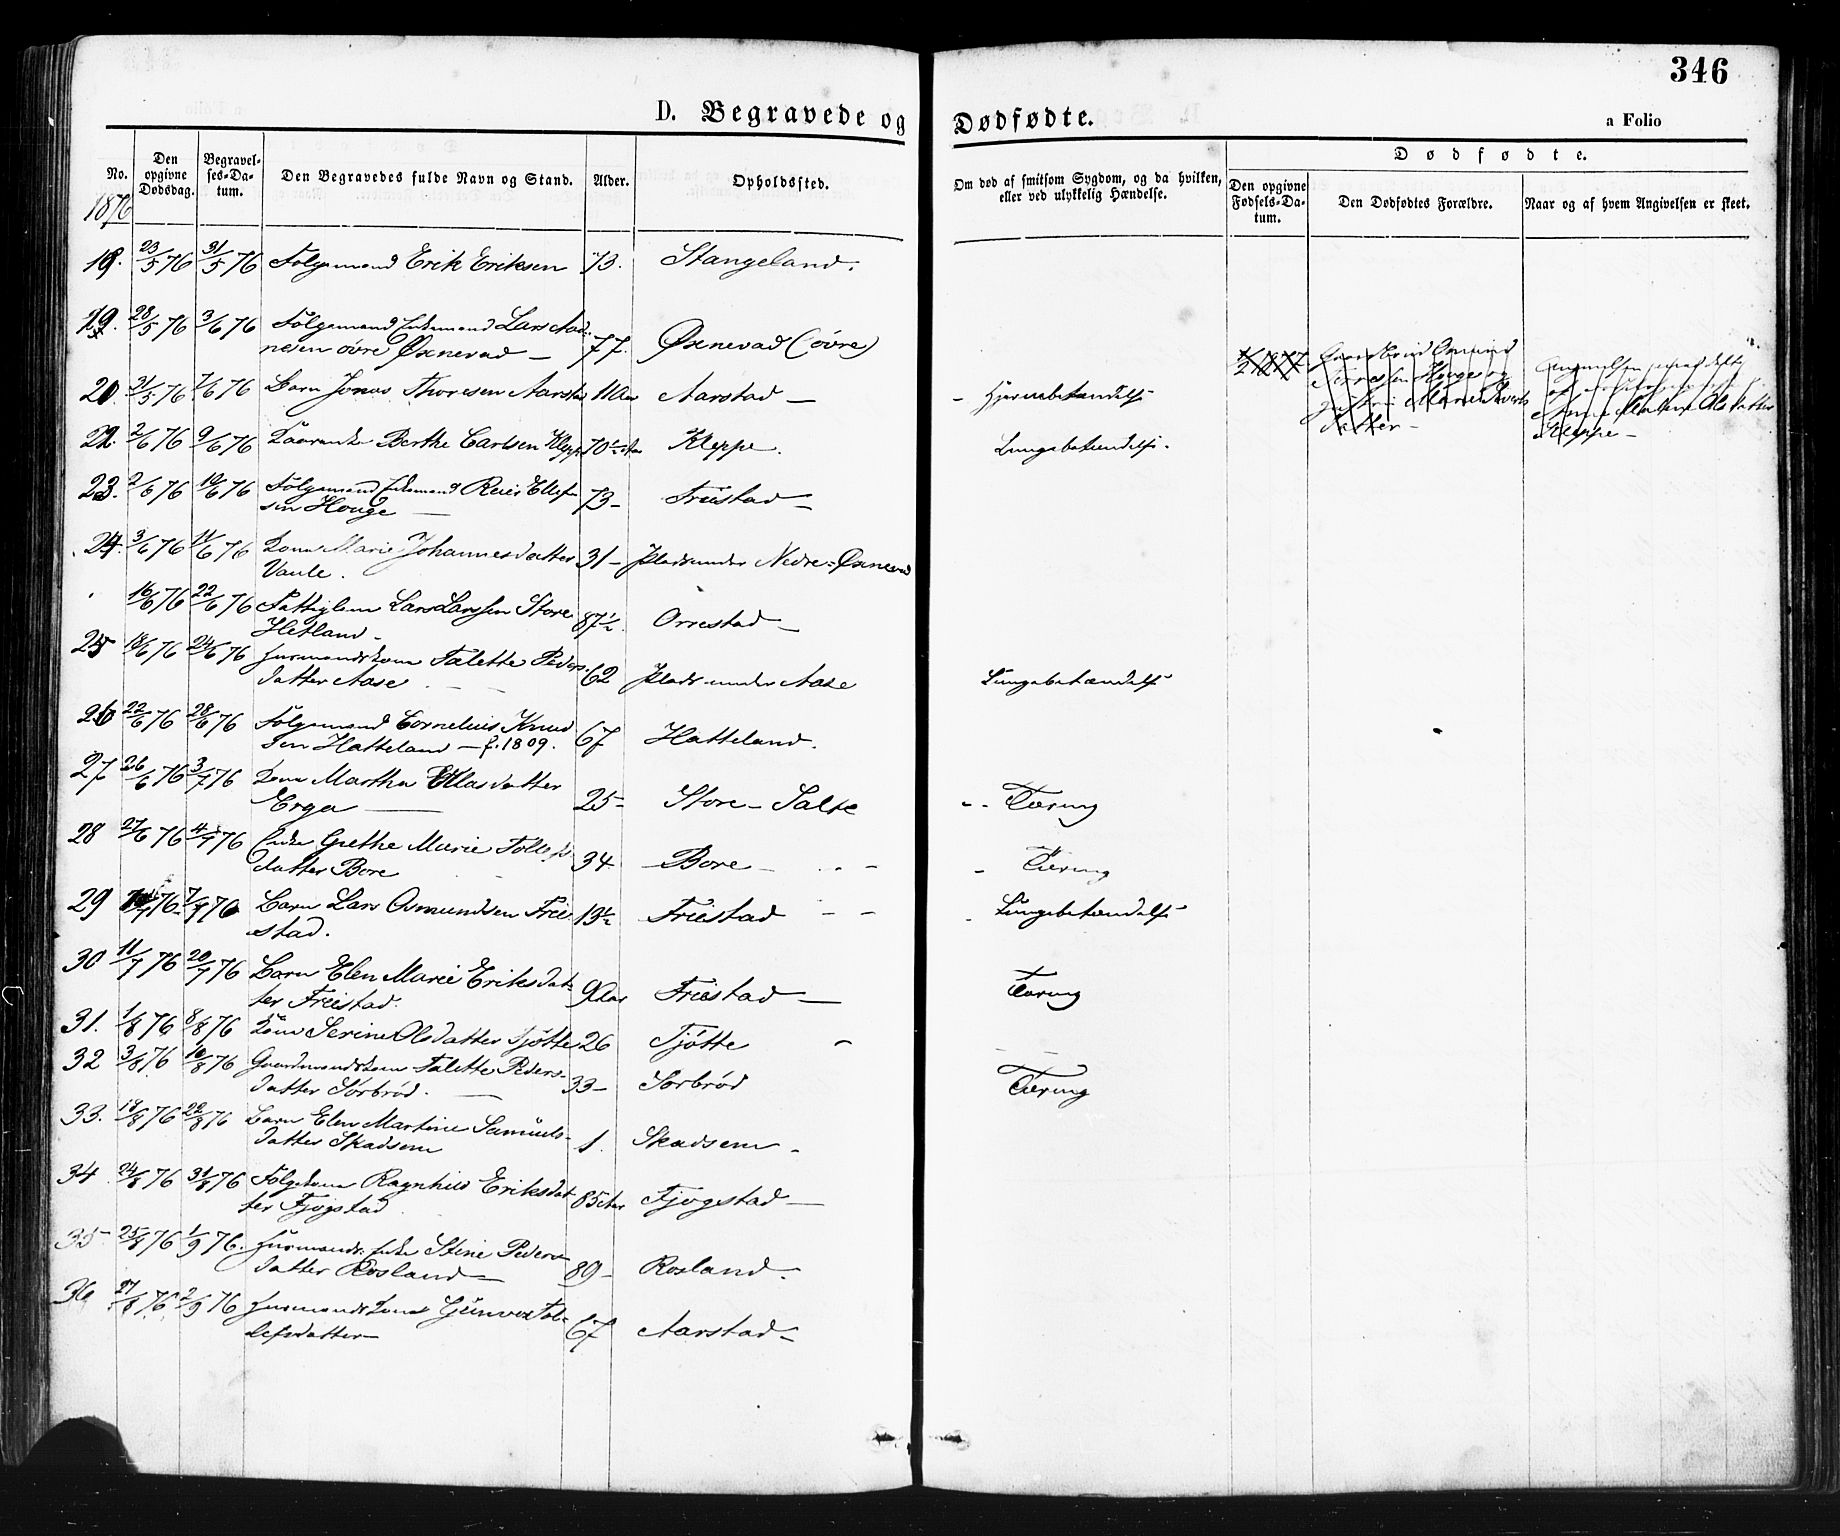 346
D. Begravede og Dødfødte.
a Folio
No.
Den opgivne Dødsdag.
Begravel-ses-Da-tum.
Den Begravedes fulde Navn og Stand.
Alder.
Opholdssted.
Om død af smitsom Sygdom, og da hvilken, eller ved ulykkelig Hændelse.
Dødfødte.
Den opgivne Fødsels-Da-tum.
Den Dødfødtes Forældre.
Naar og af hvem Angivelsen er skeet.
1876
23/5 76 31/5 76 Følgemand Erik Eriksen 73. Stangeland.
19. 28/5 76 3/6 76 Følgemand Enkemand Lars
nesen øvre Øxnevad — 77. Øxnevad (øvre)
31/5 76 7/6 76 Barn Jonas Thoresen Aarstad Aarstad —
- Hjernebetændelse
22. 2/6 76 9/6 76 Berthe Carlsen Kleppe 70½ Kleppe.
Lungebetændelse.
23. 2/6 76 10/6 76 Følgemand Enkemand Reier Ellef
sen Houge — 73- Friestad —
24. 3/6 76 11/6 76 Kone Marie Johannesdatter
Vaule. 31- Plads under Nedre-Øxnevad
16/6 76 22/6 76 Fattiglem Lars Larssen Store
Hetland - 87½. Orrestad —
25 18/6 76 24/6 76 Husmandskone Talette Peders-
datter Aase. 62 Plads under Aase Lungebetændelse
26 22/6 76 28/6 76 Følgemand Cornelius Knud
sen Hatteland — f. 1809. 67 Hatteland.
27 26/6 76 3/7 76 Kone Martha Ellasdatter
Erga — 25- Store-Salte -- Tæring
28 27/6 76 4/7 76 Enke Grethe Marie Tollefs
datter Bore 34 Bore - Tæring
29 7/7 76 Barn Lars Osmundsen Frie-
stad. 13½ Friestad - Lungebetændelse
30 11/7 76 20/7 76 Barn Elen Marie Eriksdat-
ter Friestad. 9 Aar Friestad — Tæring
31. 1/8 76 8/8 76 Kone Serine Olsdatter Tjøtte 26 Tjøtte
32 3/8 76 10/8 76 Gaardmandskone Talette Peders-
datter Sørbrød. 33- Sørbrød Tæring
33. 18/8 76 22/8 76 Barn Elen Martine Samuels-
datter Skadsem 1. Skadsem -
34 24/8 76 31/8 76 Følgekone Ragnhild Eriksdat
ter Fjøgstad 85 Aar Fjogstad —
35 25/8 76 1/9 76. Husmands Enke Stine Peders
datter Rosland — 89- Rosland.
36 27/8 76 2/9 76 Husmandskone Gunvor Tol-
lefsdatter — 67 Aarstad -
Houge og
datter —
Kleppe —